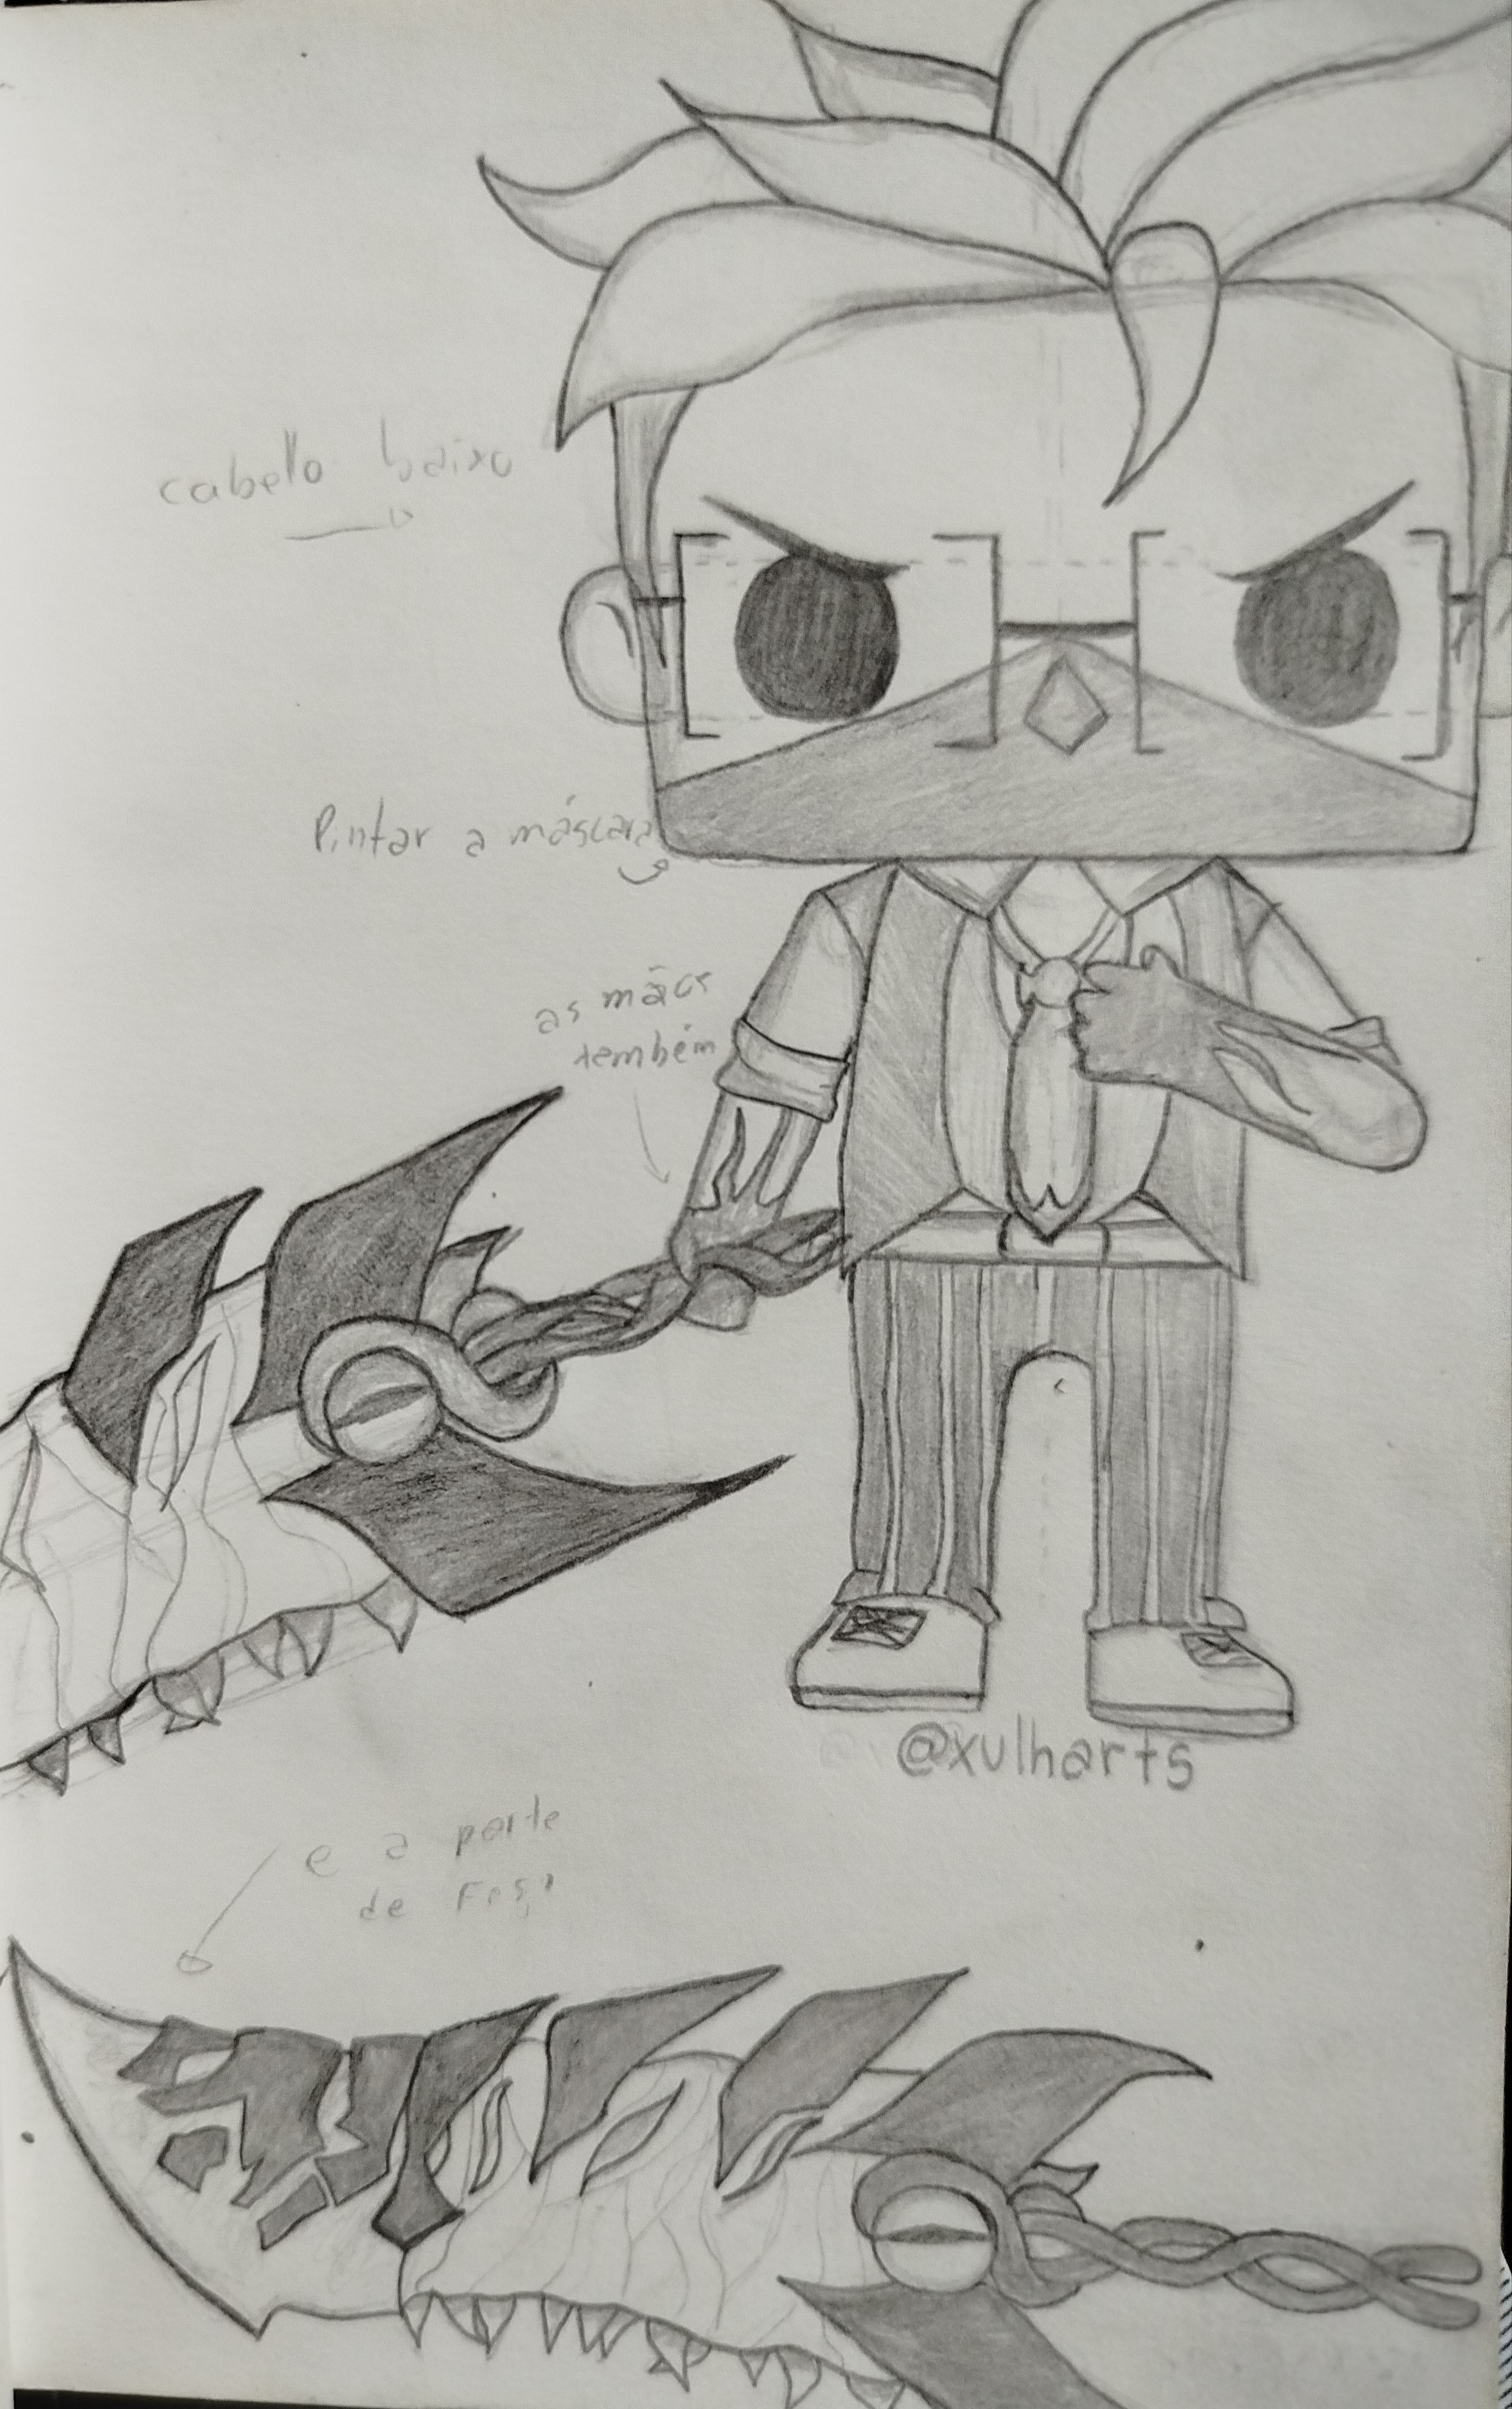 cabelo baixo
Pintar a máscara
as mãos
também
@xulharts
e a parte
de Fogo